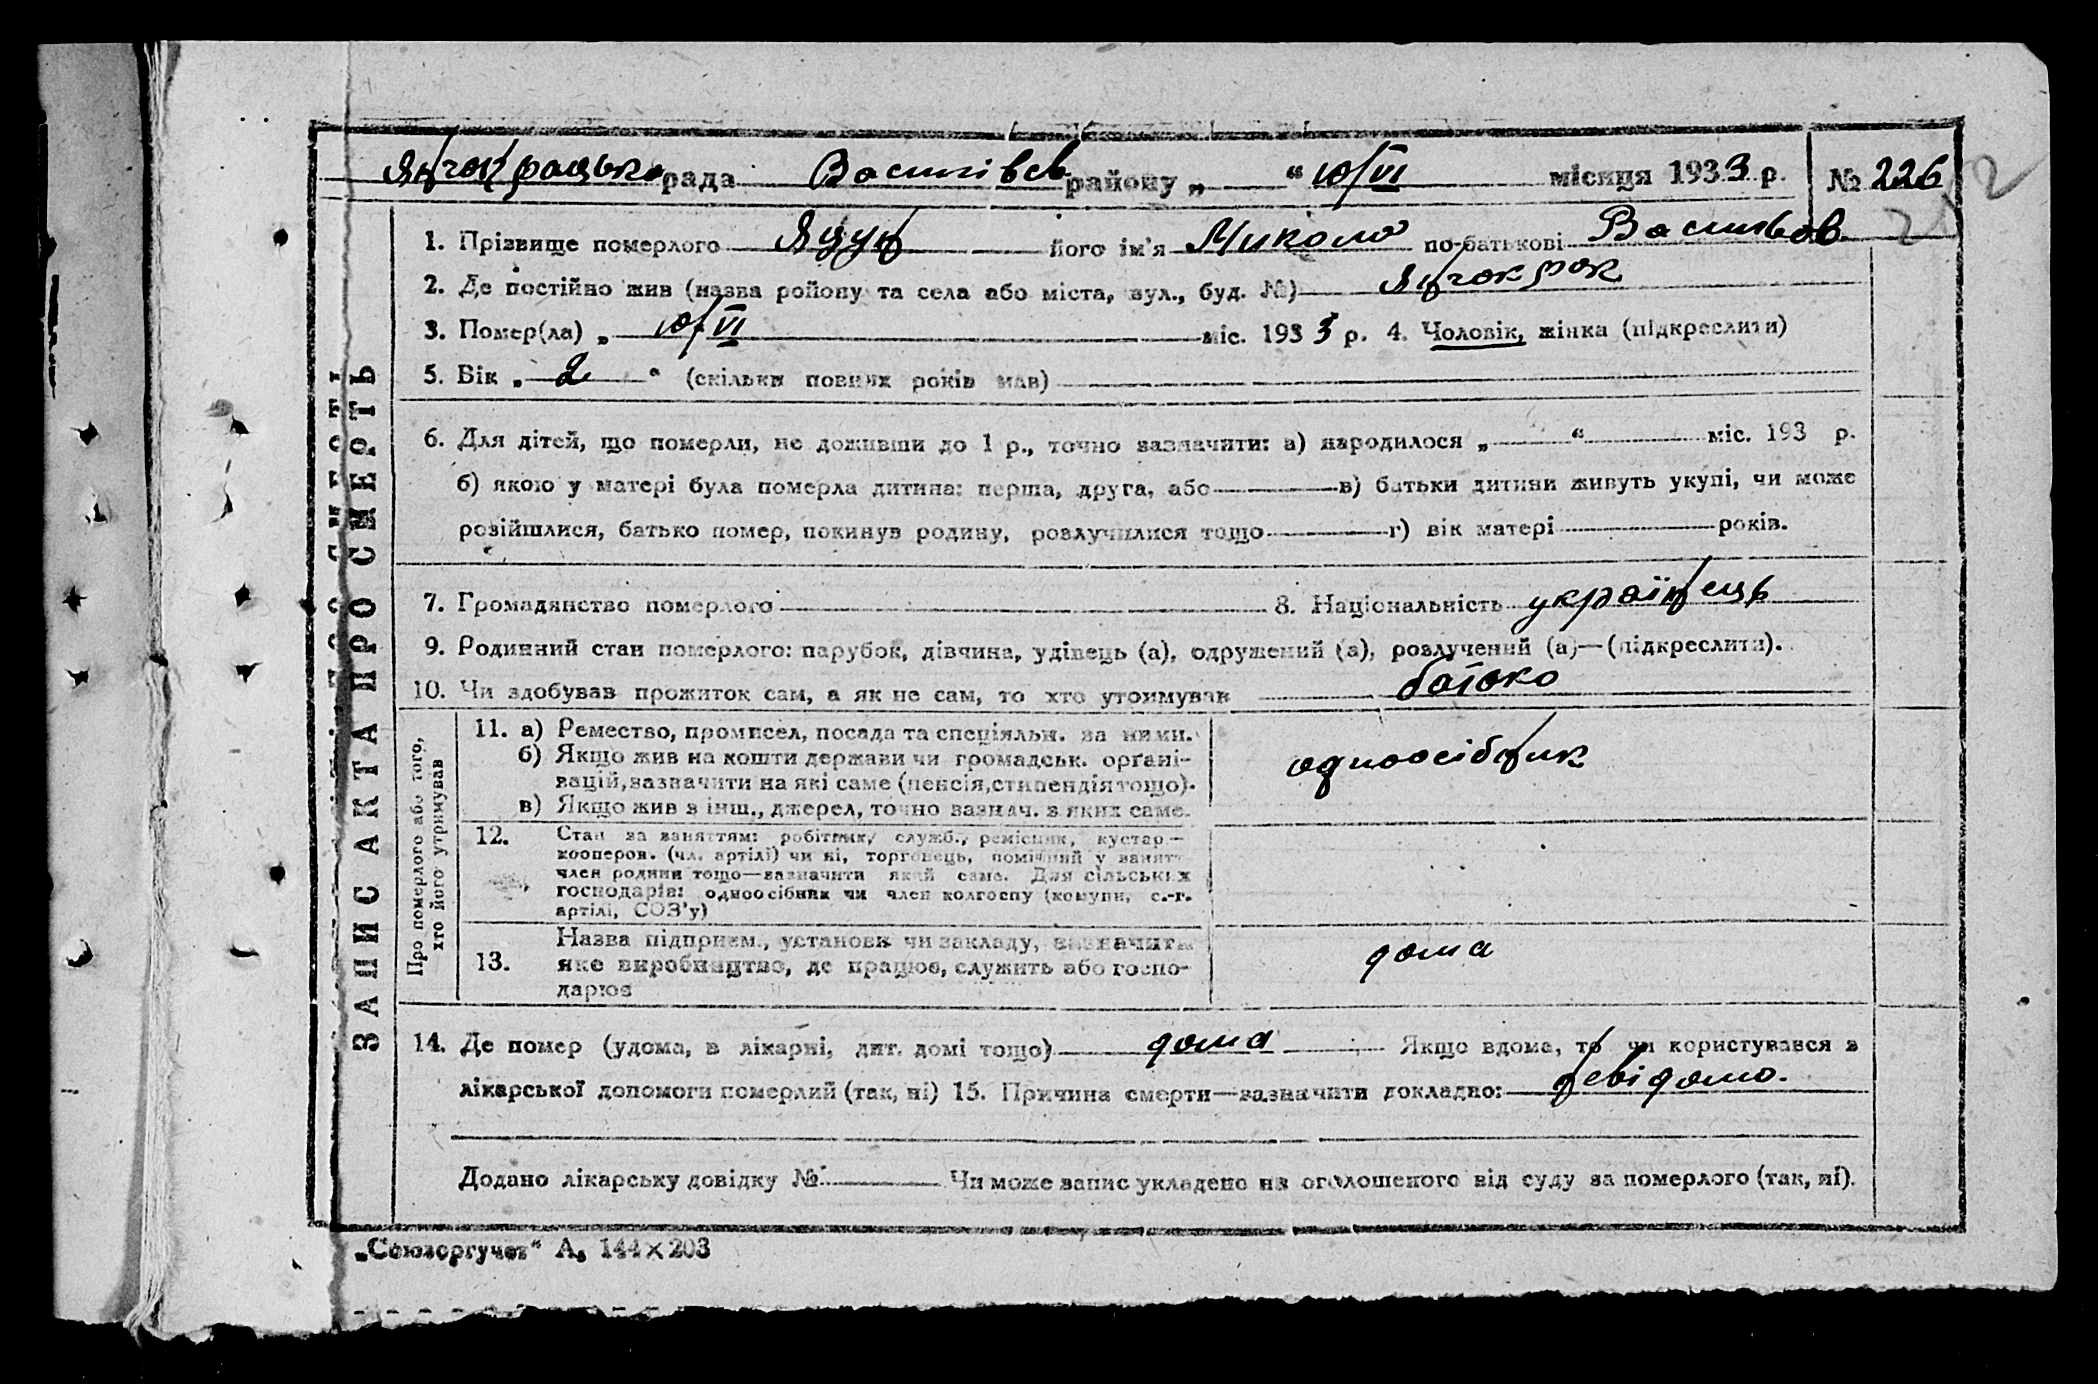 Янчокрацька рада Василівськ району „ “ 10/VI місяця 1933 р. № 226
1. Прізвище померлого Яцун його ім'я Микола по-батькові Васильов.
2. Де постійно жив (назва району та села або міста, вул., буд. №) Янчокрак
3. Помер(ла) „ 10/VI міс. 1933 р. 4. Чоловік, жінка (підкреслити)
5. Вік „ 2 “ (скільки повних років мав)
6. Для дітей, що померли, не доживши до 1 р., точно зазначити: а) народилося „ “ міс. 193 р.
б) якою у матері була померла дитина: перша, друга, або в) батьки дитини живуть укупі, чи може
розійшлися, батько помер, покинув родину, розлучилися тощо г) вік матері років.
7. Громадянство померлого 8. Національність українець
9. Родинний стан померлого: парубок, дівчина, удівець (а), одружений (а), розлучений (а)—(підкреслити).
10. Чи здобував прожиток сам, а як не сам, то хто утримував батько
Про померлого або того,
хто його утримував
11. а) Ремество, промисел, посада та спеціяльн. за ними.
б) Якщо жив на кошти держави чи громадськ. органі-
зацій, зазначити на які саме (пенсія, стипендія тощо).
в) Якщо жив з інш., джерел, точно зазнач. з яких саме.
одноосібник
12. Стан за заняттям: робітник, служб., ремісник, кустар—
кооперов. (чл. артілі) чи ні, торговець, помічний у занятт
член родини тощо—зазначити який саме. Для сільських
господарів: одноосібник чи член колгоспу (комуни, с.-г.
артілі, СОЗ'у)
13. Назва підприєм., установи чи закладу, зазначити
яке виробництво, де працює, служить або госпо-
дарює
дома
14. Де помер (удома, в лікарні, дит. домі тощо) дома Якщо вдома, то чи користувався з
лікарської допомоги померлий (так, ні) 15. Причина смерти—зазначити докладно: невідомо.
Додано лікарську довідку № Чи може запис укладено на оголошеного від суду за померлого (так, ні).
ЗАПИС АКТА ПРО СМЕРТЬ
„Союзоргучет“ А₆ 144×203